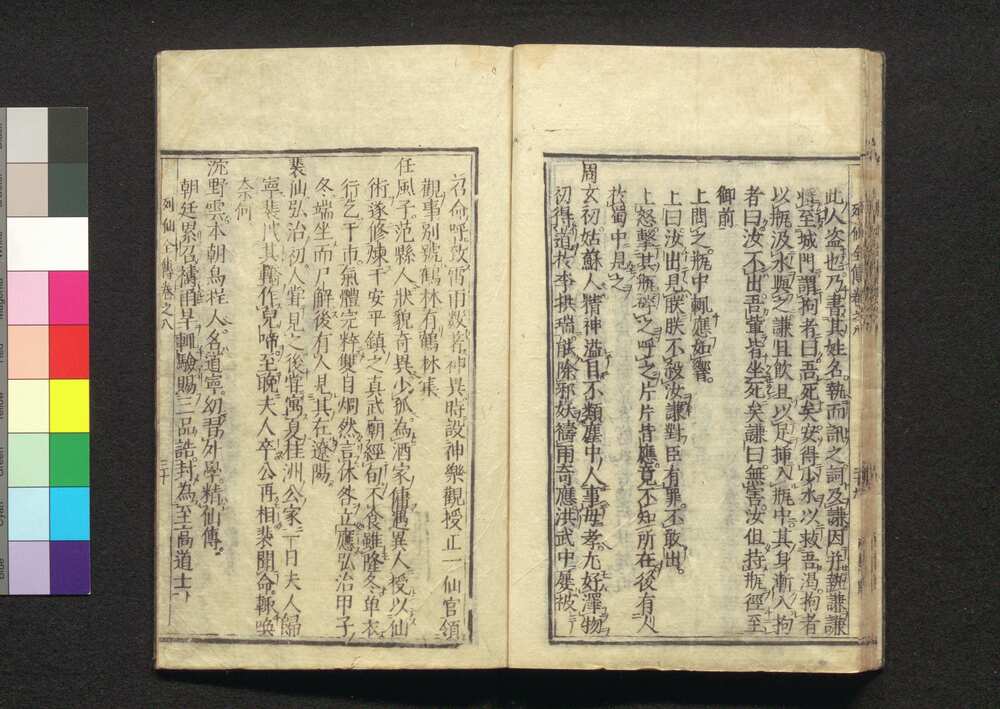 此人盗也乃書其姓名執而訊之詞及謙因并執謙謙
將至城門謂拘者曰吾死矣安得少水以救吾渴拘者
以瓶汲水與之謙且飲且以足揷入瓶中其身漸入拘
者曰汝不出吾輩皆坐死矣謙曰無害汝但持瓶徑至
御前
上問之瓶中輒應如響
上曰汝出見朕朕不殺汝謙對臣有罪不敢出
上怒擊其瓶碎之呼之片片皆應竟不知所在後有人
於蜀中見之
周玄初姑蘇人精神溢目不類塵中人事母孝尤好澤物
初得道於李拱瑞能除邪妖禱雨奇應洪武中屡被
召命呼致雷雨数著神異時設神樂觀授正一仙官領
觀事别號鶴林有鶴林集
任風子范縣人狀貌奇異少孤為酒家傭遇異人授以仙
術遂修煉于安平鎮之真武廟經旬不食雖隆冬单衣
行乞于市氣體完粹雙目烱然言休咎立應弘治甲子
冬端坐而尸解後有人見其在遼陽
裴仙弘治初人嘗見之後嘗寓夏桂洲公家一日夫人歸
寧裴
作兒啼至晚夫人卒公再相裴聞命輒喚
奈何
沈野雲本朝烏程人名道寧幼習外學精仙傳
朝廷累召禱雨旱輒驗賜三品誥封為至高道士
列仙全傳卷之八
三十